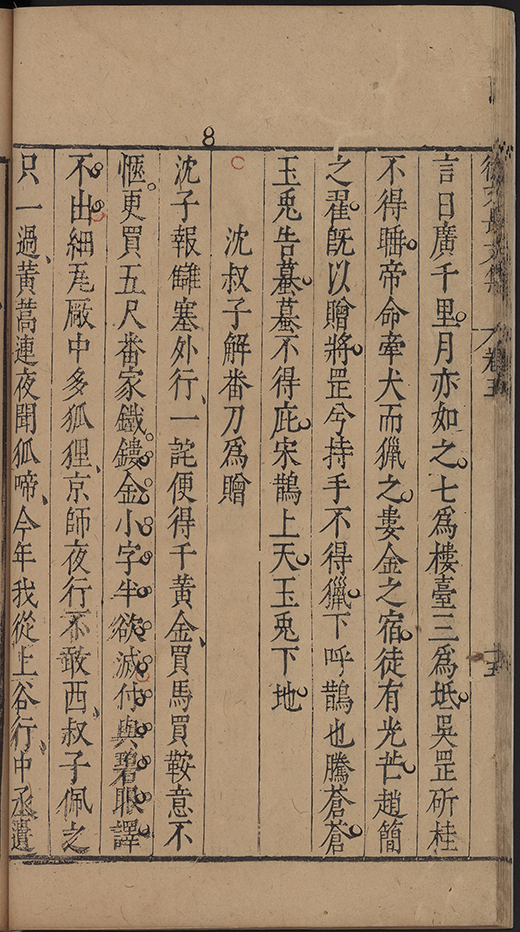 8
徐文長文集 卷五 十五
言日廣千里月亦如之七爲樓臺三爲坻吳罡斫桂
不得睡帝命牽犬而獵之婁金之宿徒有光芒趙簡
之翟旣以贈將罡兮持手不得獵下呼鵲也騰蒼蒼
玉兎告蟇蟇不得庇宋鵲上天玉兎下地
沈叔子解番刀爲贈
沈子報讎塞外行一詫便得千黃金買馬買鞍意不
愜更買五尺番家鐵鏤金小字半欲滅付與碧眼譯
不出細尾厰中多狐狸京師夜行不敢西叔子佩之
只一過黃蒿連夜聞狐啼今年我從上谷行中丞遺